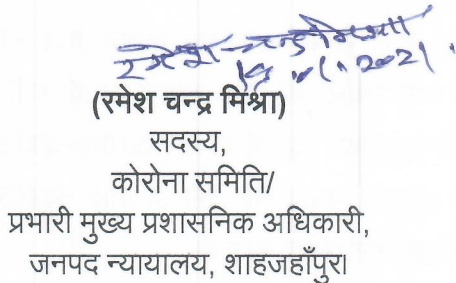 रमेश चन्द्र मिश्रा
(रमेश चन्द्र मिश्रा)
सदस्य,
कोरोना समिति/
प्रभारी मुख्य प्रशासनिक अधिकारी,
जनपद न्यायालय, शाहजहाँपुर।